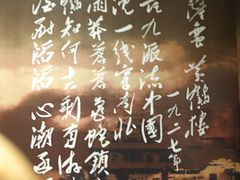 黄鹤楼
一九二七年
九派流中國
沉一线穿南北
雨莽苍苍龟蛇锁
知何去剩有游
酒酹滔滔心潮逐